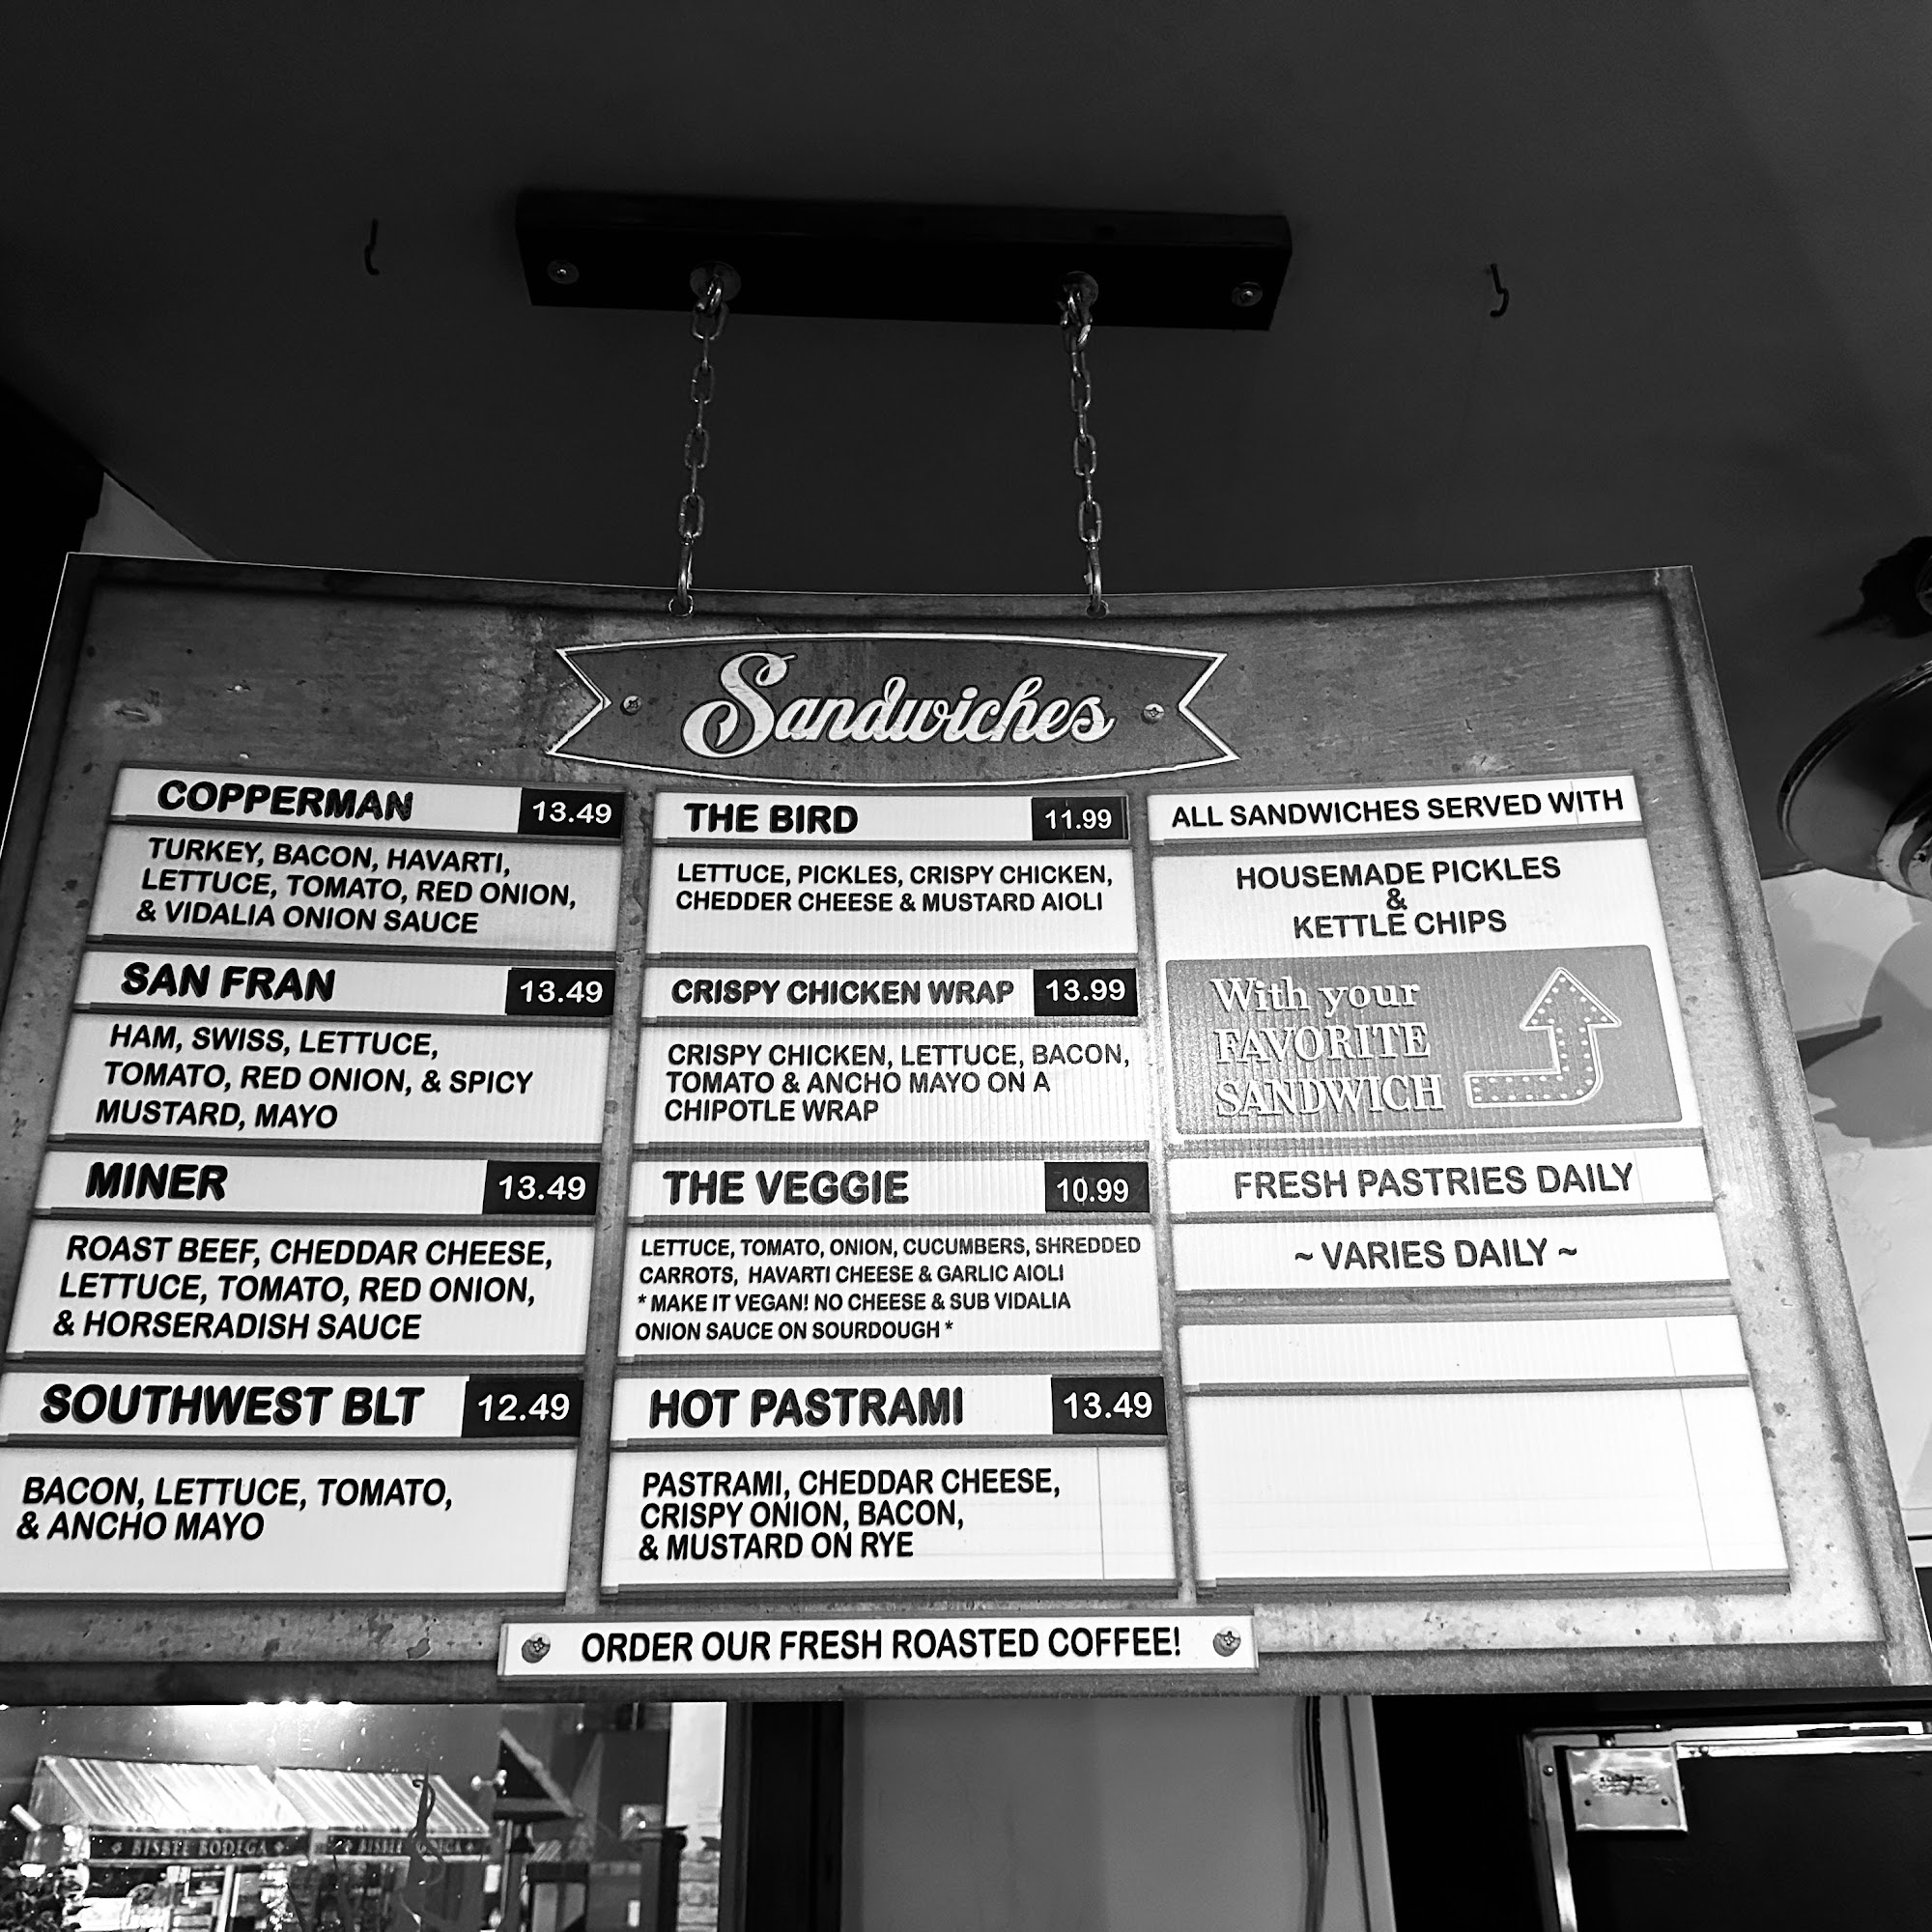 Sandwiches
COPPERMAN 13.49
TURKEY, BACON, HAVARTI,
LETTUCE, TOMATO, RED ONION,
& VIDALIA ONION SAUCE
SAN FRAN 13.49
HAM, SWISS, LETTUCE,
TOMATO, RED ONION, & SPICY
MUSTARD, MAYO
MINER 13.49
ROAST BEEF, CHEDDAR CHEESE,
LETTUCE, TOMATO, RED ONION,
& HORSERADISH SAUCE
SOUTHWEST BLT 12.49
BACON, LETTUCE, TOMATO,
& ANCHO MAYO
THE BIRD 11.99
LETTUCE, PICKLES, CRISPY CHICKEN,
CHEDDER CHEESE & MUSTARD AIOLI
CRISPY CHICKEN WRAP 13.99
CRISPY CHICKEN, LETTUCE, BACON,
TOMATO & ANCHO MAYO ON A
CHIPOTLE WRAP
THE VEGGIE 10.99
LETTUCE, TOMATO, ONION, CUCUMBERS, SHREDDED
CARROTS, HAVARTI CHEESE & GARLIC AIOLI
* MAKE IT VEGAN! NO CHEESE & SUB VIDALIA
ONION SAUCE ON SOURDOUGH *
HOT PASTRAMI 13.49
PASTRAMI, CHEDDAR CHEESE,
CRISPY ONION, BACON,
& MUSTARD ON RYE
ALL SANDWICHES SERVED WITH
HOUSEMADE PICKLES
&
KETTLE CHIPS
With your
FAVORITE
SANDWICH
FRESH PASTRIES DAILY
~ VARIES DAILY ~
ORDER OUR FRESH ROASTED COFFEE!
BISBEE BODEGA
BISBEE BODEGA